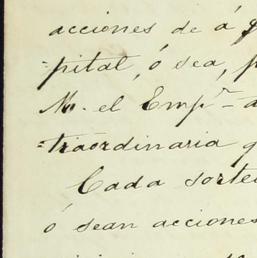 acciones de á
=pital, ó sea,
M. el Emp.r
=traordinaria
Cada sorte
ó sean acciones